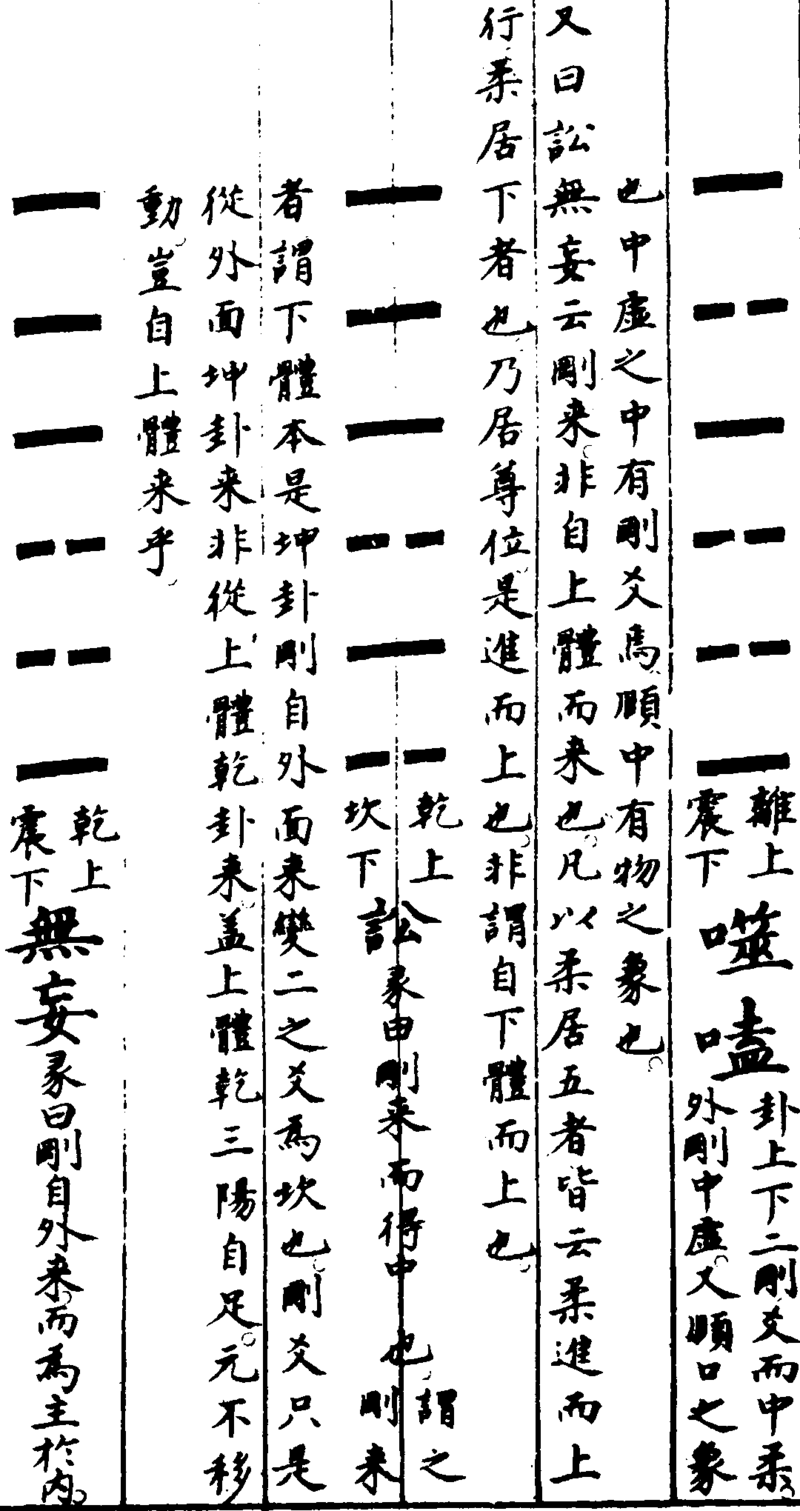 離上
震下
噬嗑
卦上下二剛爻而中柔
外剛中虛又頤口之象
也中虛之中有剛爻焉頤中有物之象也
又曰訟無妄云剛来非自上體而来也凡以柔居五者皆云柔進而上
行柔居下者也乃居尊位是進而上也非謂自下體而上也
乾上
坎下
訟
彖曰剛来而得中也
謂之
剛来
者謂下體本是坤卦剛自外面来變二之爻為坎也剛爻只是
從外面坤卦来非從上體乾卦来盖上體乾三陽自足元不移
動豈自上體来乎
乾上
震下
無妄
彖曰剛自外来而為主於内